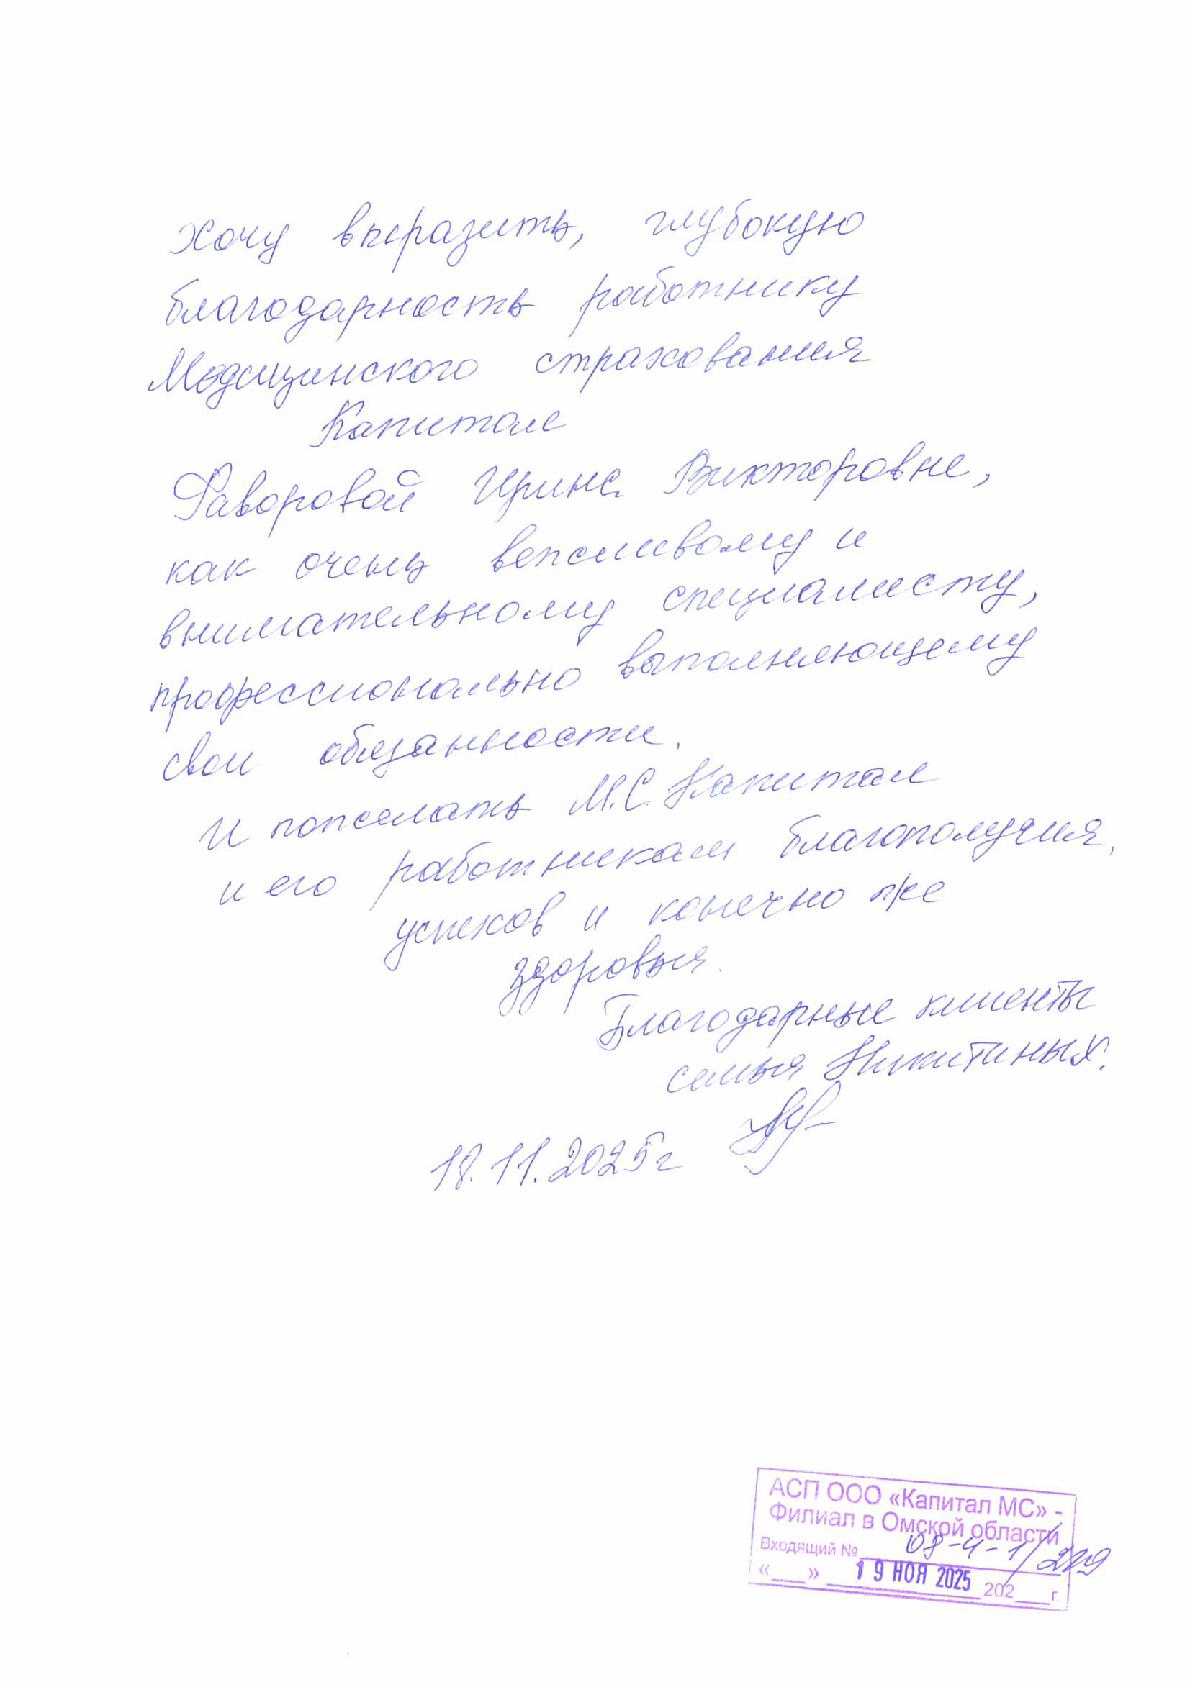 Хочу выразить, глубокую
благодарность работнику
Медицинского страхования
Капитале
Фаворовой Ирине Викторовне,
как очень вежливому и
внимательному специалисту,
профессионально выполняющему
свои обязанности.
И пожелать М.С. Капитал
и его работникам благополучия,
успехов и конечно же
здоровья.
Благодарные клиенты
семья Никитиных.
18.11.2025г
АСП ООО «Капитал МС» -
Филиал в Омской области
Входящий № 08-4-1/
«___» 19 НОЯ 2025 202___г.